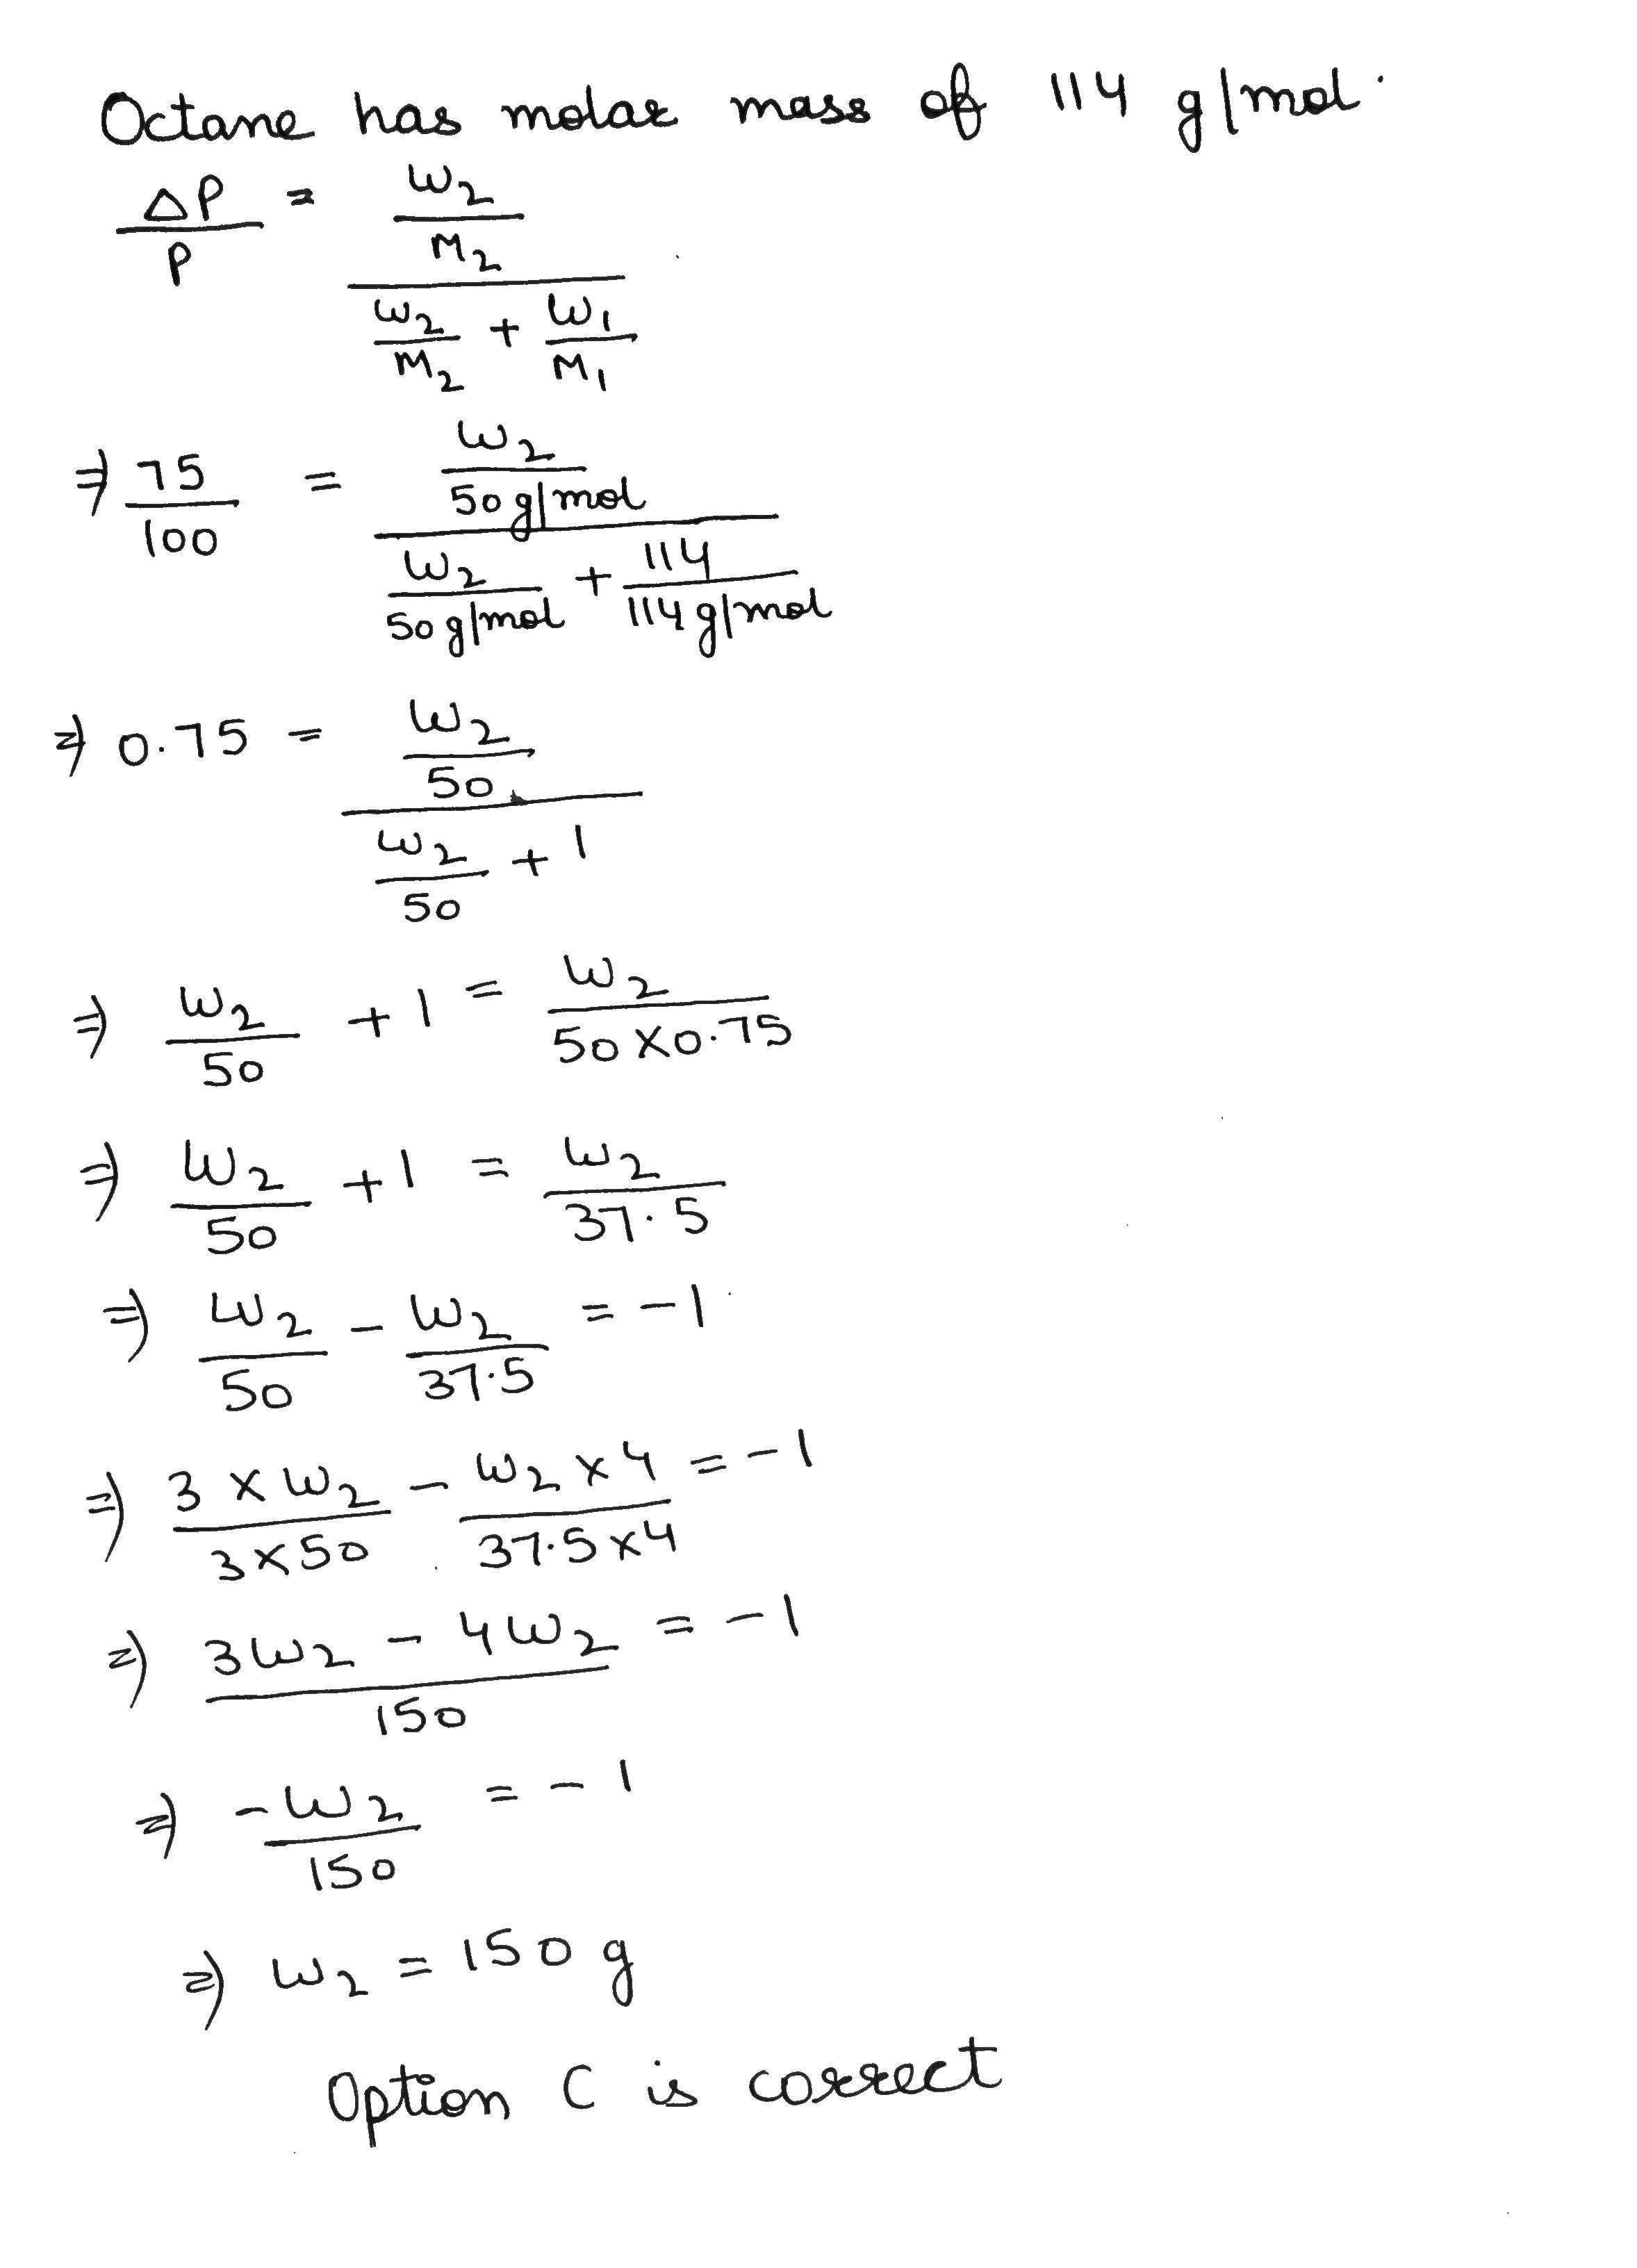 Octane has molar mass of 114 g/mol.
ΔP/P = (W2/M2) / (W2/M2 + W1/M1)
⇒ 75/100 = (W2/50 g/mol) / (W2/50 g/mol + 114/114 g/mol)
⇒ 0.75 = (W2/50) / (W2/50 + 1)
⇒ W2/50 + 1 = W2/(50 × 0.75)
⇒ W2/50 + 1 = W2/37.5
⇒ W2/50 - W2/37.5 = -1
⇒ (3 × W2)/(3 × 50) - (W2 × 4)/(37.5 × 4) = -1
⇒ (3W2 - 4W2)/150 = -1
⇒ -W2/150 = -1
⇒ W2 = 150 g
Option C is correct